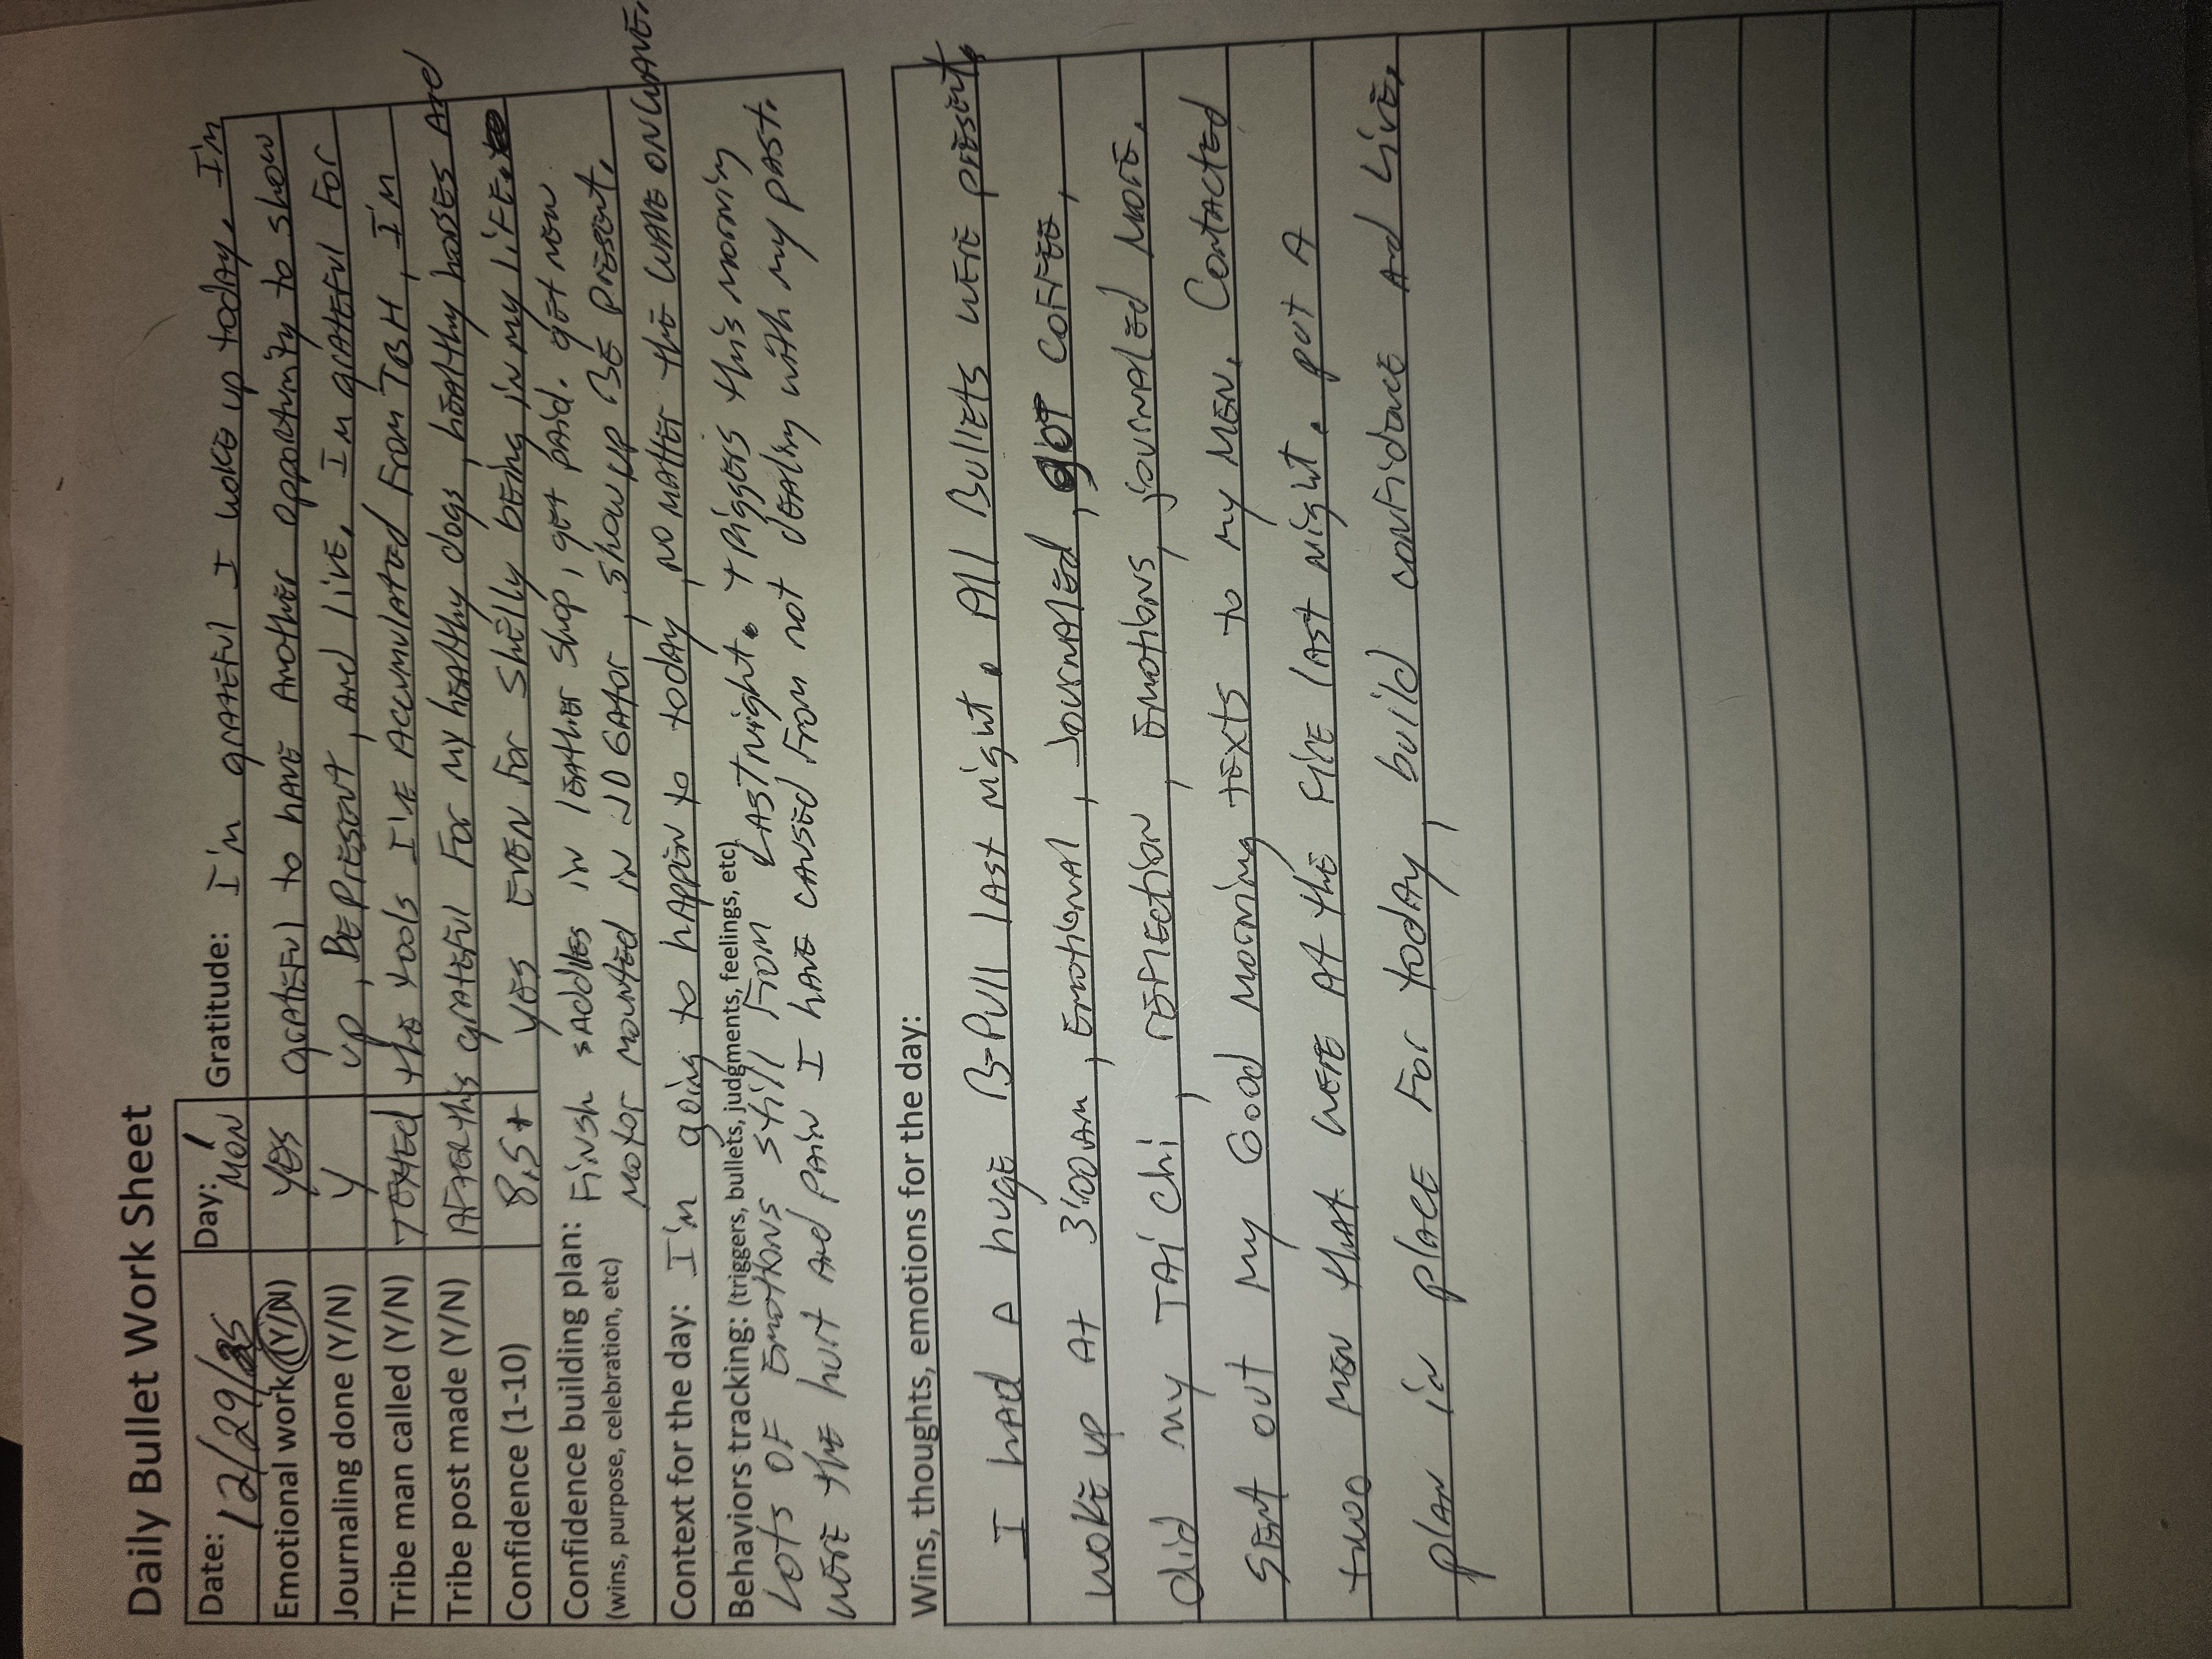 Daily Bullet Work Sheet
Date: 12/29/25 Day: MON Gratitude: I'm grateful I woke up today. I'm
Emotional work (Y/N) YES grateful to have another opportunity to show
Journaling done (Y/N) Y up, Be Present, and live. I'm grateful for
Tribe man called (Y/N) TEXTED the tools I've accumulated from TBH, I'm
Tribe post made (Y/N) AFTER this grateful for my healthy dogs, healthy horses and
Confidence (1-10) 8.5+ yes even for Shelly being in my life.
Confidence building plan: Finsh saddles in leather shop, get paid. get new
(wins, purpose, celebration, etc) motor mounted in JD GATOR, show up Be present.
Context for the day: I'm going to happen to today, no matter the wave on wave.
Behaviors tracking: (triggers, bullets, judgments, feelings, etc)
Lots of emotions still from Last night. triggers this morning
were the hurt and pain I have caused from not dealing with my past.
Wins, thoughts, emotions for the day:
I had a huge B-Pull last night. All Bullets were present.
woke up at 3:00am, Emotional, Journaled, got coffee,
did my TAi Chi, reflection, emotions, journaled more.
Sent out my Good Morning texts to my men. Contacted
two men that were at the fire last night. put a
plan in place for today, build confidance and Live.